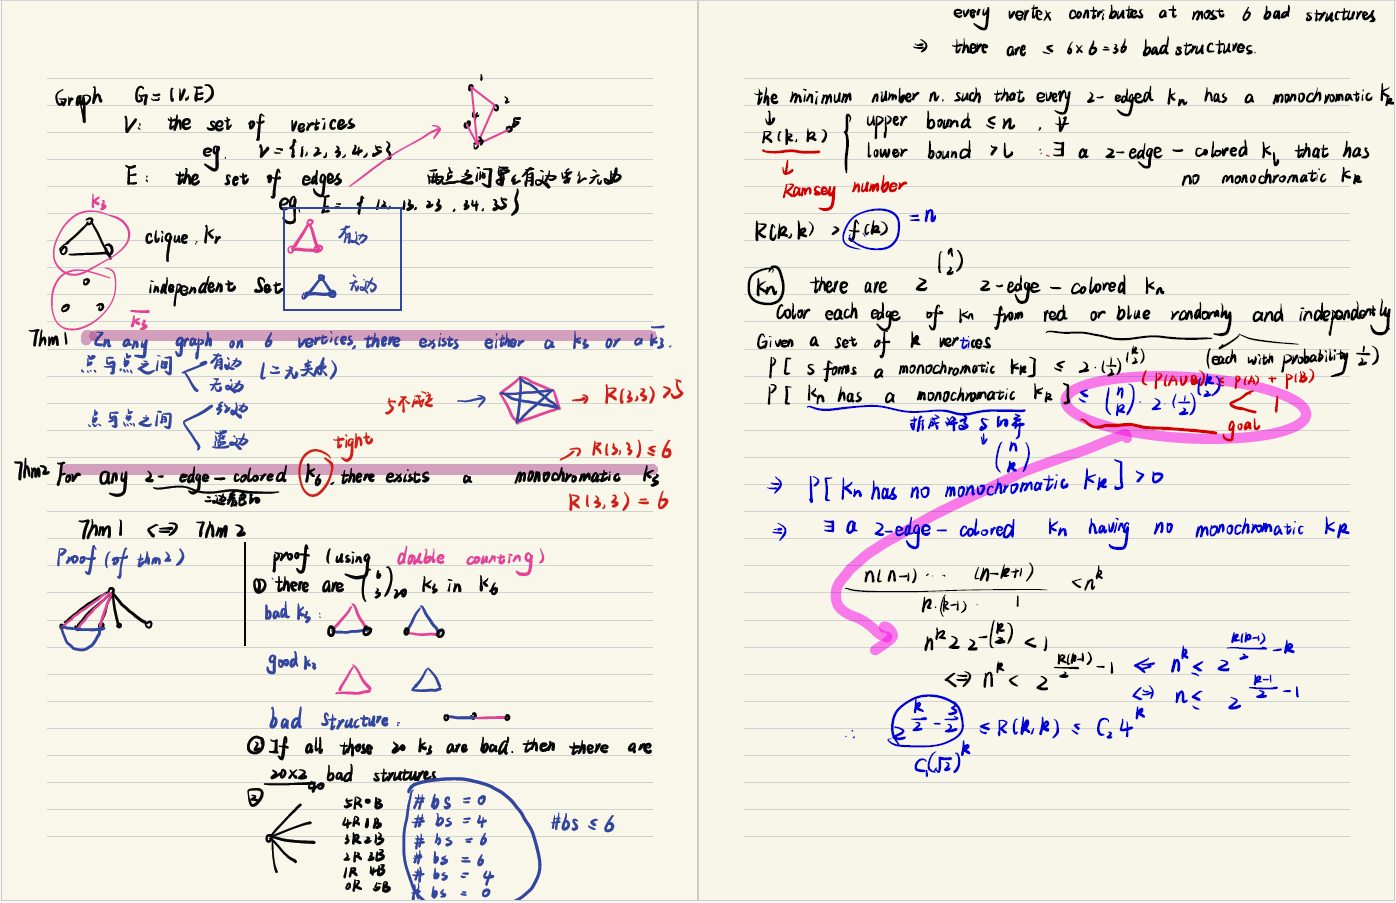 Graph G=(V,E)
V: the set of vertices
eg. V={1,2,3,4,5}
E: the set of edges
eg. E = { 12, 13, 23, 34, 35 }
1
2
K3
clique, Kr
有边
independent Set
无边
K3
Thm1 In any graph on 6 vertices, there exists either a K3 or a K3.
点与点之间 有边
无边
(二元关系)
点与点之间 红边
蓝边
5不满足 → → R(3,3) >5
tight → R(3,3) ≤ 6
Thm2 For any 2-edge-colored K6, there exists a monochromatic K3
R(3,3) = 6
Thm1 <=> Thm2
Proof (of thm2)
proof (using double counting)
① there are (6 3) 20 K3 in K6
bad K3:
good K3
bad structure:
② If all those 20 K3 are bad. then there are
20×2 bad strutures
③
5R 0B # bs = 0
4R 1B # bs = 4
3R 2B # bs = 6
2R 3B # bs = 6
1R 4B # bs = 4
0R 5B # bs = 0
#bs ≤ 6
every vertex contributes at most 6 bad structures
⇒ there are ≤ 6×6=36 bad structures.
the minimum number n. such that every 2-edged Kn has a monochromatic Kk
R(k,k) { upper bound ≤ n , ∀
lower bound > L ∴ ∃ a 2-edge-colored KL that has
no monochromatic Kk
Ramsey number
R(k,k) > f(k) = n
Kn there are 2^(n 2) 2-edge-colored Kn
Color each edge of Kn from red or blue randomly and independently
Given a set of k vertices (each with probability 1/2)
P[ S forms a monochromatic Kk ] ≤ 2·(1/2)^(k 2)
(P(A∪B) ≤ P(A) + P(B)
P[ Kn has a monochromatic Kk ] ≤ (n k)·2·(1/2)^(k 2) < 1
goal
(n k)
⇒ P[ Kn has no monochromatic Kk ] > 0
⇒ ∃ a 2-edge-colored Kn having no monochromatic Kk
n(n-1)··· (n-k+1) / k·(k-1)· 1 < n^k
n^k 2 2^-(k 2) < 1
<=> n^k < 2^(k(k-1)/2 -1) ⇐ n^k ≤ 2^(k(k-1)/2 -k)
<=> n ≤ 2^((k-1)/2 -1)
∴ 2^(k/2 - 3/2) ≤ R(k,k) ≤ C2 4^k
C1(√2)^k